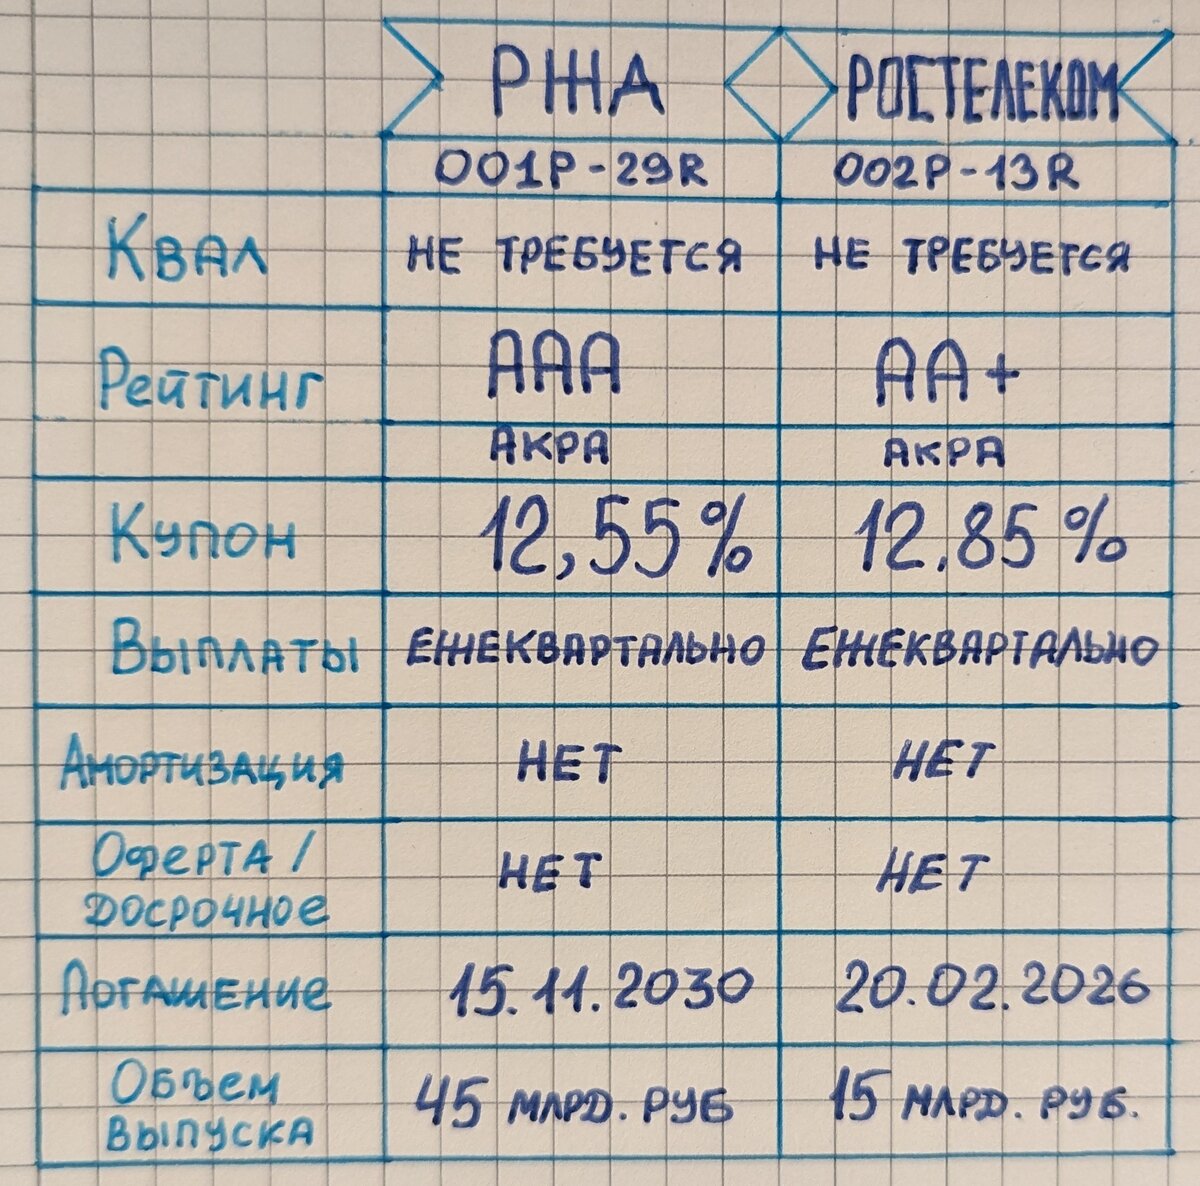 РЖД РОСТЕЛЕКОМ
001P-29R 002P-13R
Квал НЕ ТРЕБУЕТСЯ НЕ ТРЕБУЕТСЯ
Рейтинг AAA AA+
АКРА АКРА
Купон 12,55% 12.85%
Выплаты ЕЖЕКВАРТАЛЬНО ЕЖЕКВАРТАЛЬНО
Амортизация НЕТ НЕТ
Оферта / НЕТ НЕТ
досрочное
Погашение 15.11.2030 20.02.2026
Объем 45 МЛРД. РУБ 15 МЛРД. РУБ.
выпуска